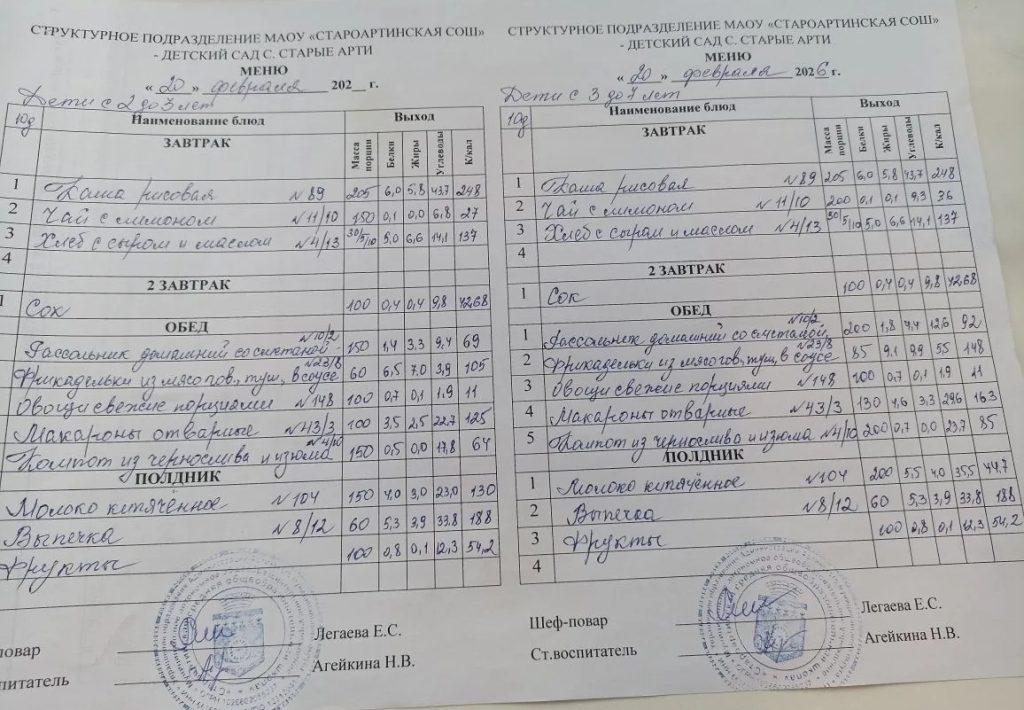 СТРУКТУРНОЕ ПОДРАЗДЕЛЕНИЕ МАОУ «СТАРОАРТИНСКАЯ СОШ»
- ДЕТСКИЙ САД С. СТАРЫЕ АРТИ
МЕНЮ
« 20 » февраля 202__ г.
Дети с 2 до 3 лет
10д Наименование блюд Выход
ЗАВТРАК Масса порции Белки Жиры Углеводы К/кал
1 Каша рисовая №89 205 6,0 5,8 43,7 248
2 Чай с лимоном №11/10 150 0,1 0,0 6,8 27
3 Хлеб с сыром и маслом №4/13 30/5/10 5,0 6,6 14,1 137
4
2 ЗАВТРАК
1 Сок 100 0,4 0,4 9,8 42,68
ОБЕД
Рассольник домашний со сметаной №10/2 150 1,4 3.3 9,4 69
Фрикадельки из мяса гов., туш, в соусе №23/8 60 6,5 7,0 3,9 105
Овощи свежие порциями №148 100 0,7 0,1 1.9 11
Макароны отварные №43/3 100 3,5 2,5 22,7 125
Компот из чернослива и изюма №4/10 150 0,5 0,0 17,8 64
ПОЛДНИК
Молоко кипячённое №104 150 4,0 3,0 23,0 130
Выпечка №8/12 60 5,3 3,9 33,8 188
Фрукты 100 0,8 0,1 12,3 54,2
повар Легаева Е.С.
питатель Агейкина Н.В.
СТРУКТУРНОЕ ПОДРАЗДЕЛЕНИЕ МАОУ «СТАРОАРТИНСКАЯ СОШ»
- ДЕТСКИЙ САД С. СТАРЫЕ АРТИ
МЕНЮ
« 20 » февраля 2026 г.
Дети с 3 до 7 лет
10д Наименование блюд Выход
ЗАВТРАК Масса порции Белки Жиры Углеводы К/кал
1 Каша рисовая №89 205 6,0 5,8 43,7 248
2 Чай с лимоном №11/10 200 0,1 0,1 9,3 36
3 Хлеб с сыром и маслом №4/13 30/5/10 5,0 6,6 14,1 137
4
2 ЗАВТРАК
1 Сок 100 0,4 0,4 9,8 42,68
ОБЕД
1 Рассольник домашний со сметаной №10/2 200 1,8 4,4 12,6 92
2 Фрикадельки из мяса гов, туш, в соусе №23/8 85 9,1 9,9 5,5 148
3 Овощи свежие порциями №148 100 0,7 0,1 1.9 11
4 Макароны отварные №43/3 130 4,6 3,3 29,6 163
5 Компот из чернослива и изюма №4/10 200 0,7 0,0 23,7 85
ПОЛДНИК
1 Молоко кипячённое №104 200 5,5 4,0 35,5 44,7
2 Выпечка №8/12 60 5,3 3,9 33,8 188
3 Фрукты 100 0,8 0,1 12,3 54,2
4
Шеф-повар Легаева Е.С.
Ст.воспитатель Агейкина Н.В.